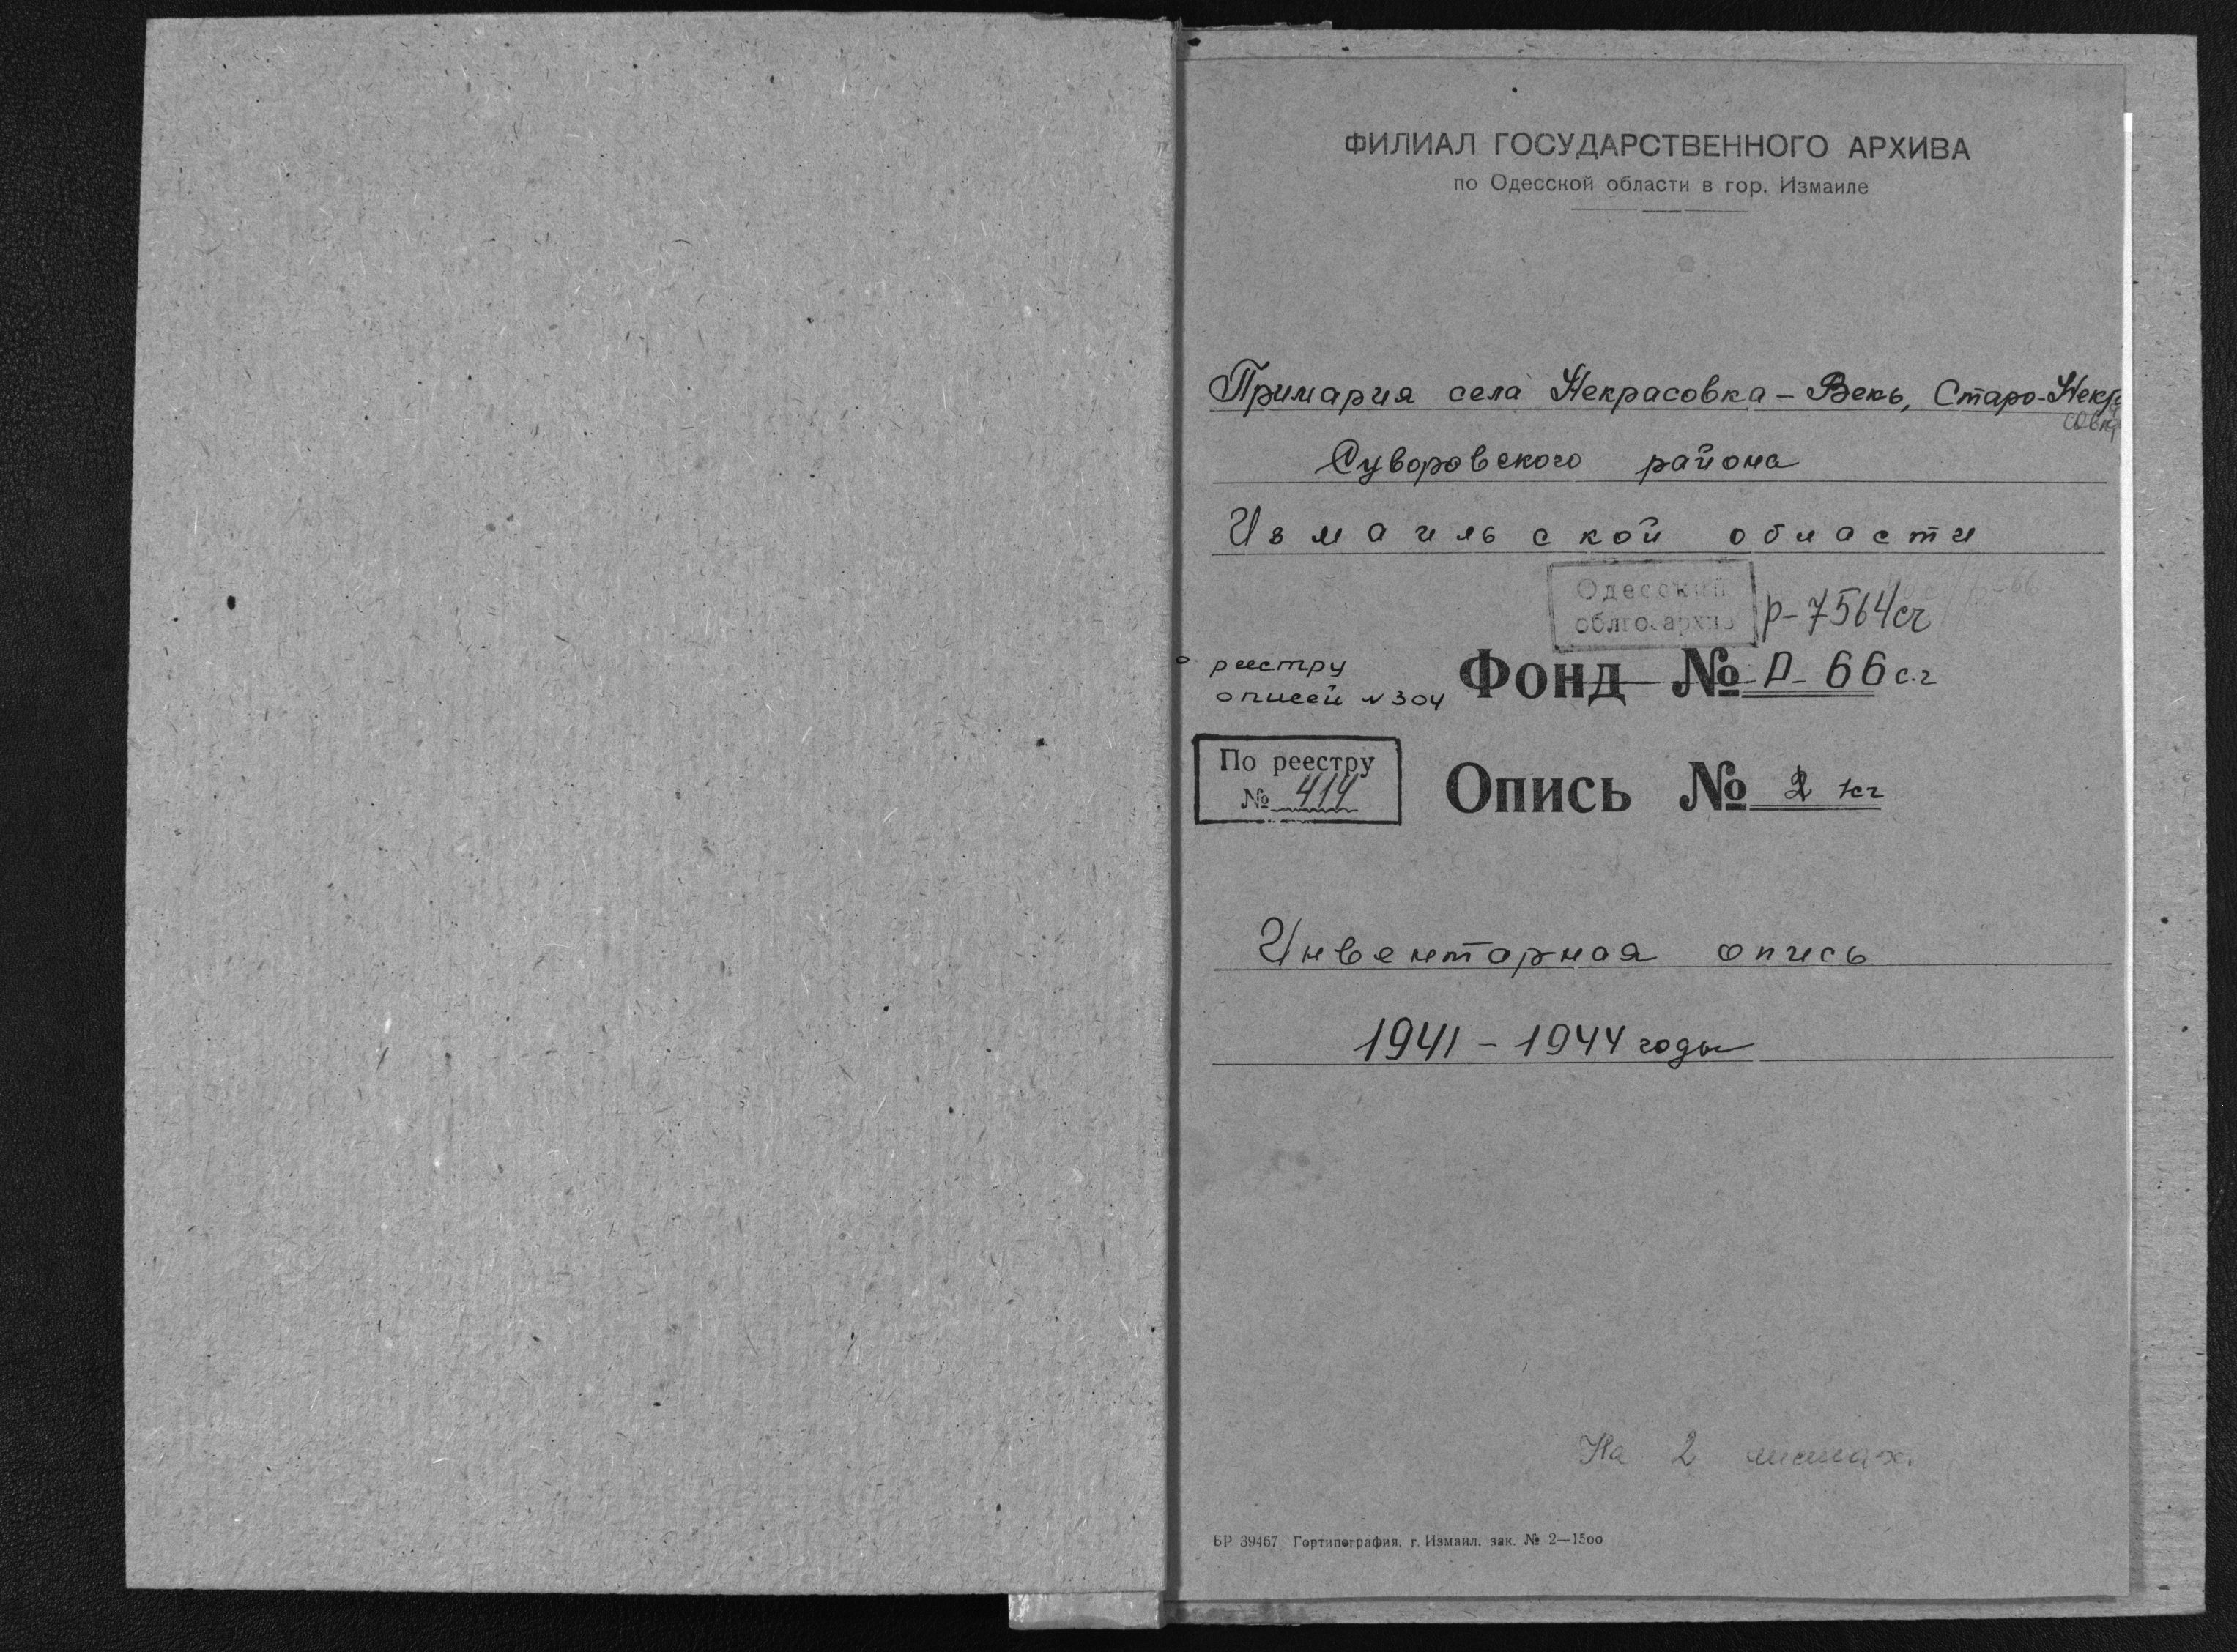 ФИЛИАЛ ГОСУДАРСТВЕННОГО АРХИВА
по Одесской области в гор. Измаиле
Примария села Некрасовка – Векь, Старо-Некра
совка
Суворовского района
Измаильской области
Одесский
облгосархив
р-7564сч
р-66
реестру
описей № 304
Фонд № Р-66 с.г
По реестру
№ 414
Опись № 2
Инвентарная опись
1941 – 1944 годы
На 2 листах.
БР 39467 Гортипография, г. Измаил. зак. № 2—1500